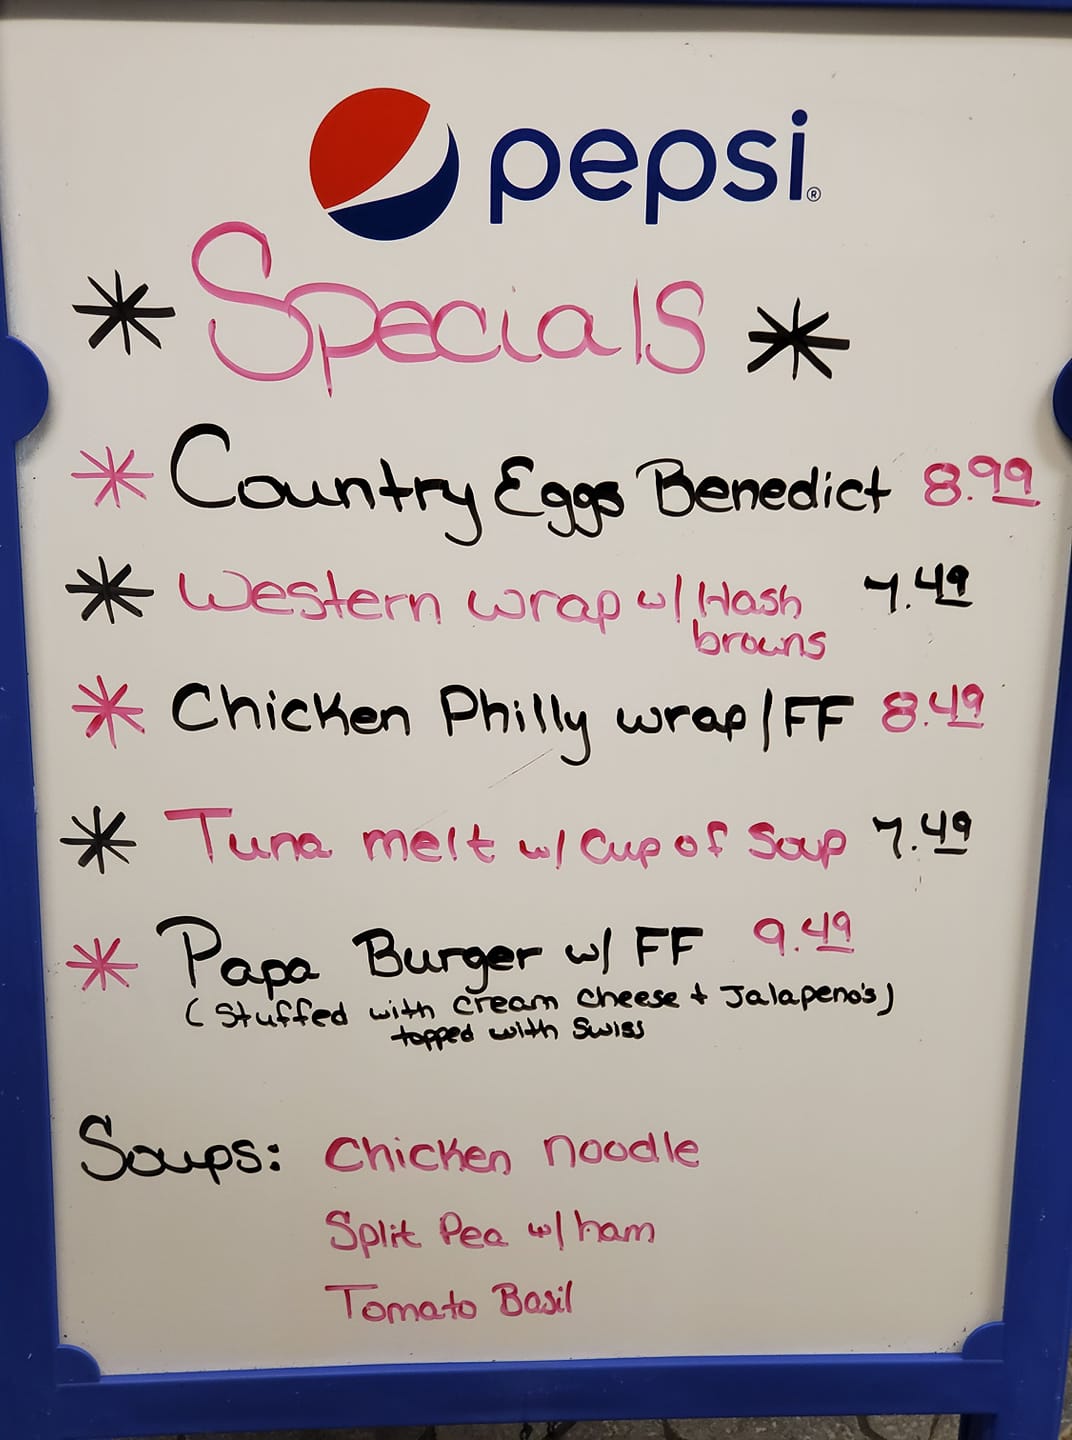 pepsi®
* Specials *
* Country Eggs Benedict 8.99
* Western wrap w/ Hash 7.49
browns
* Chicken Philly wrap/FF 8.49
* Tuna melt w/ Cup of Soup 7.49
* Papa Burger w/ FF 9.49
(Stuffed with cream cheese + Jalapeno's)
topped with Swiss
Soups: Chicken noodle
Split Pea w/ ham
Tomato Basil